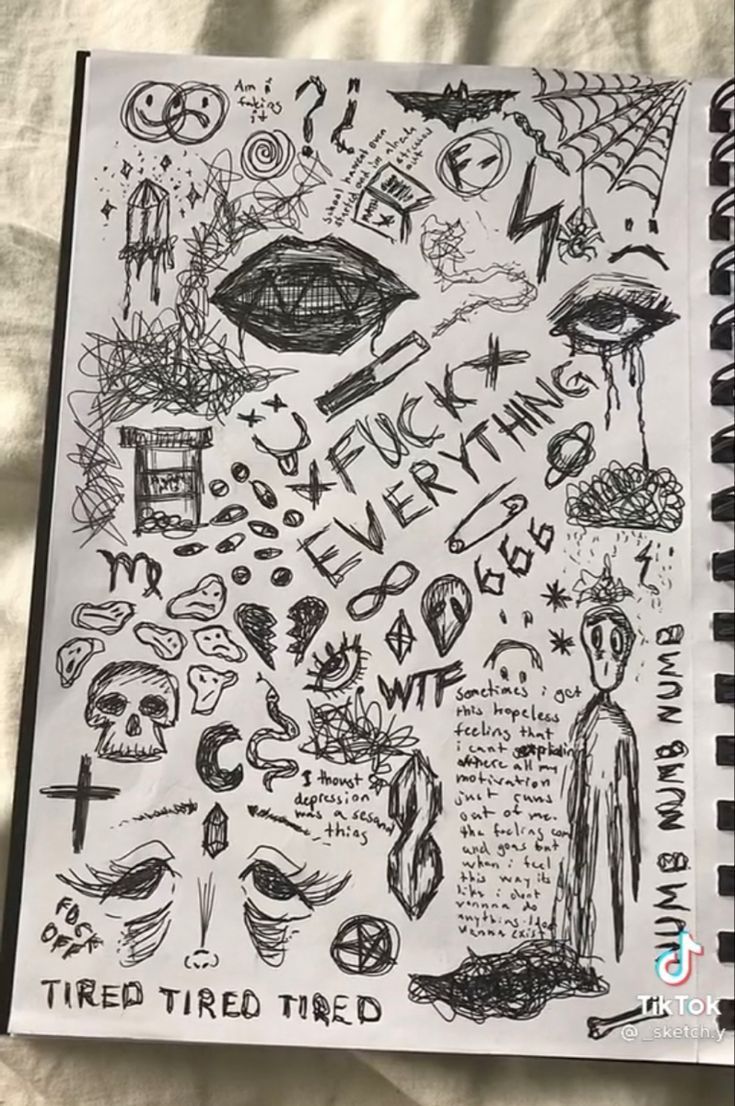 Am i
faking
it
?
school havent even
started and im alredy
stressed
out
F-
FUCK
EVERYTHING
666
WTF
sometimes i get
this hopeless
feeling that
i cant
where all my
motivation
just runs
out of me.
the feeling com
and goes but
when i feel
this way its
like i dont
wanna do
anything. I dont
wanna exist
NUMB NUMB NUMB NUMB
I thoust
depression
was a seson
thing
FUCK
OFF
TIRED TIRED TIRED
TikTok
@_sketch.y